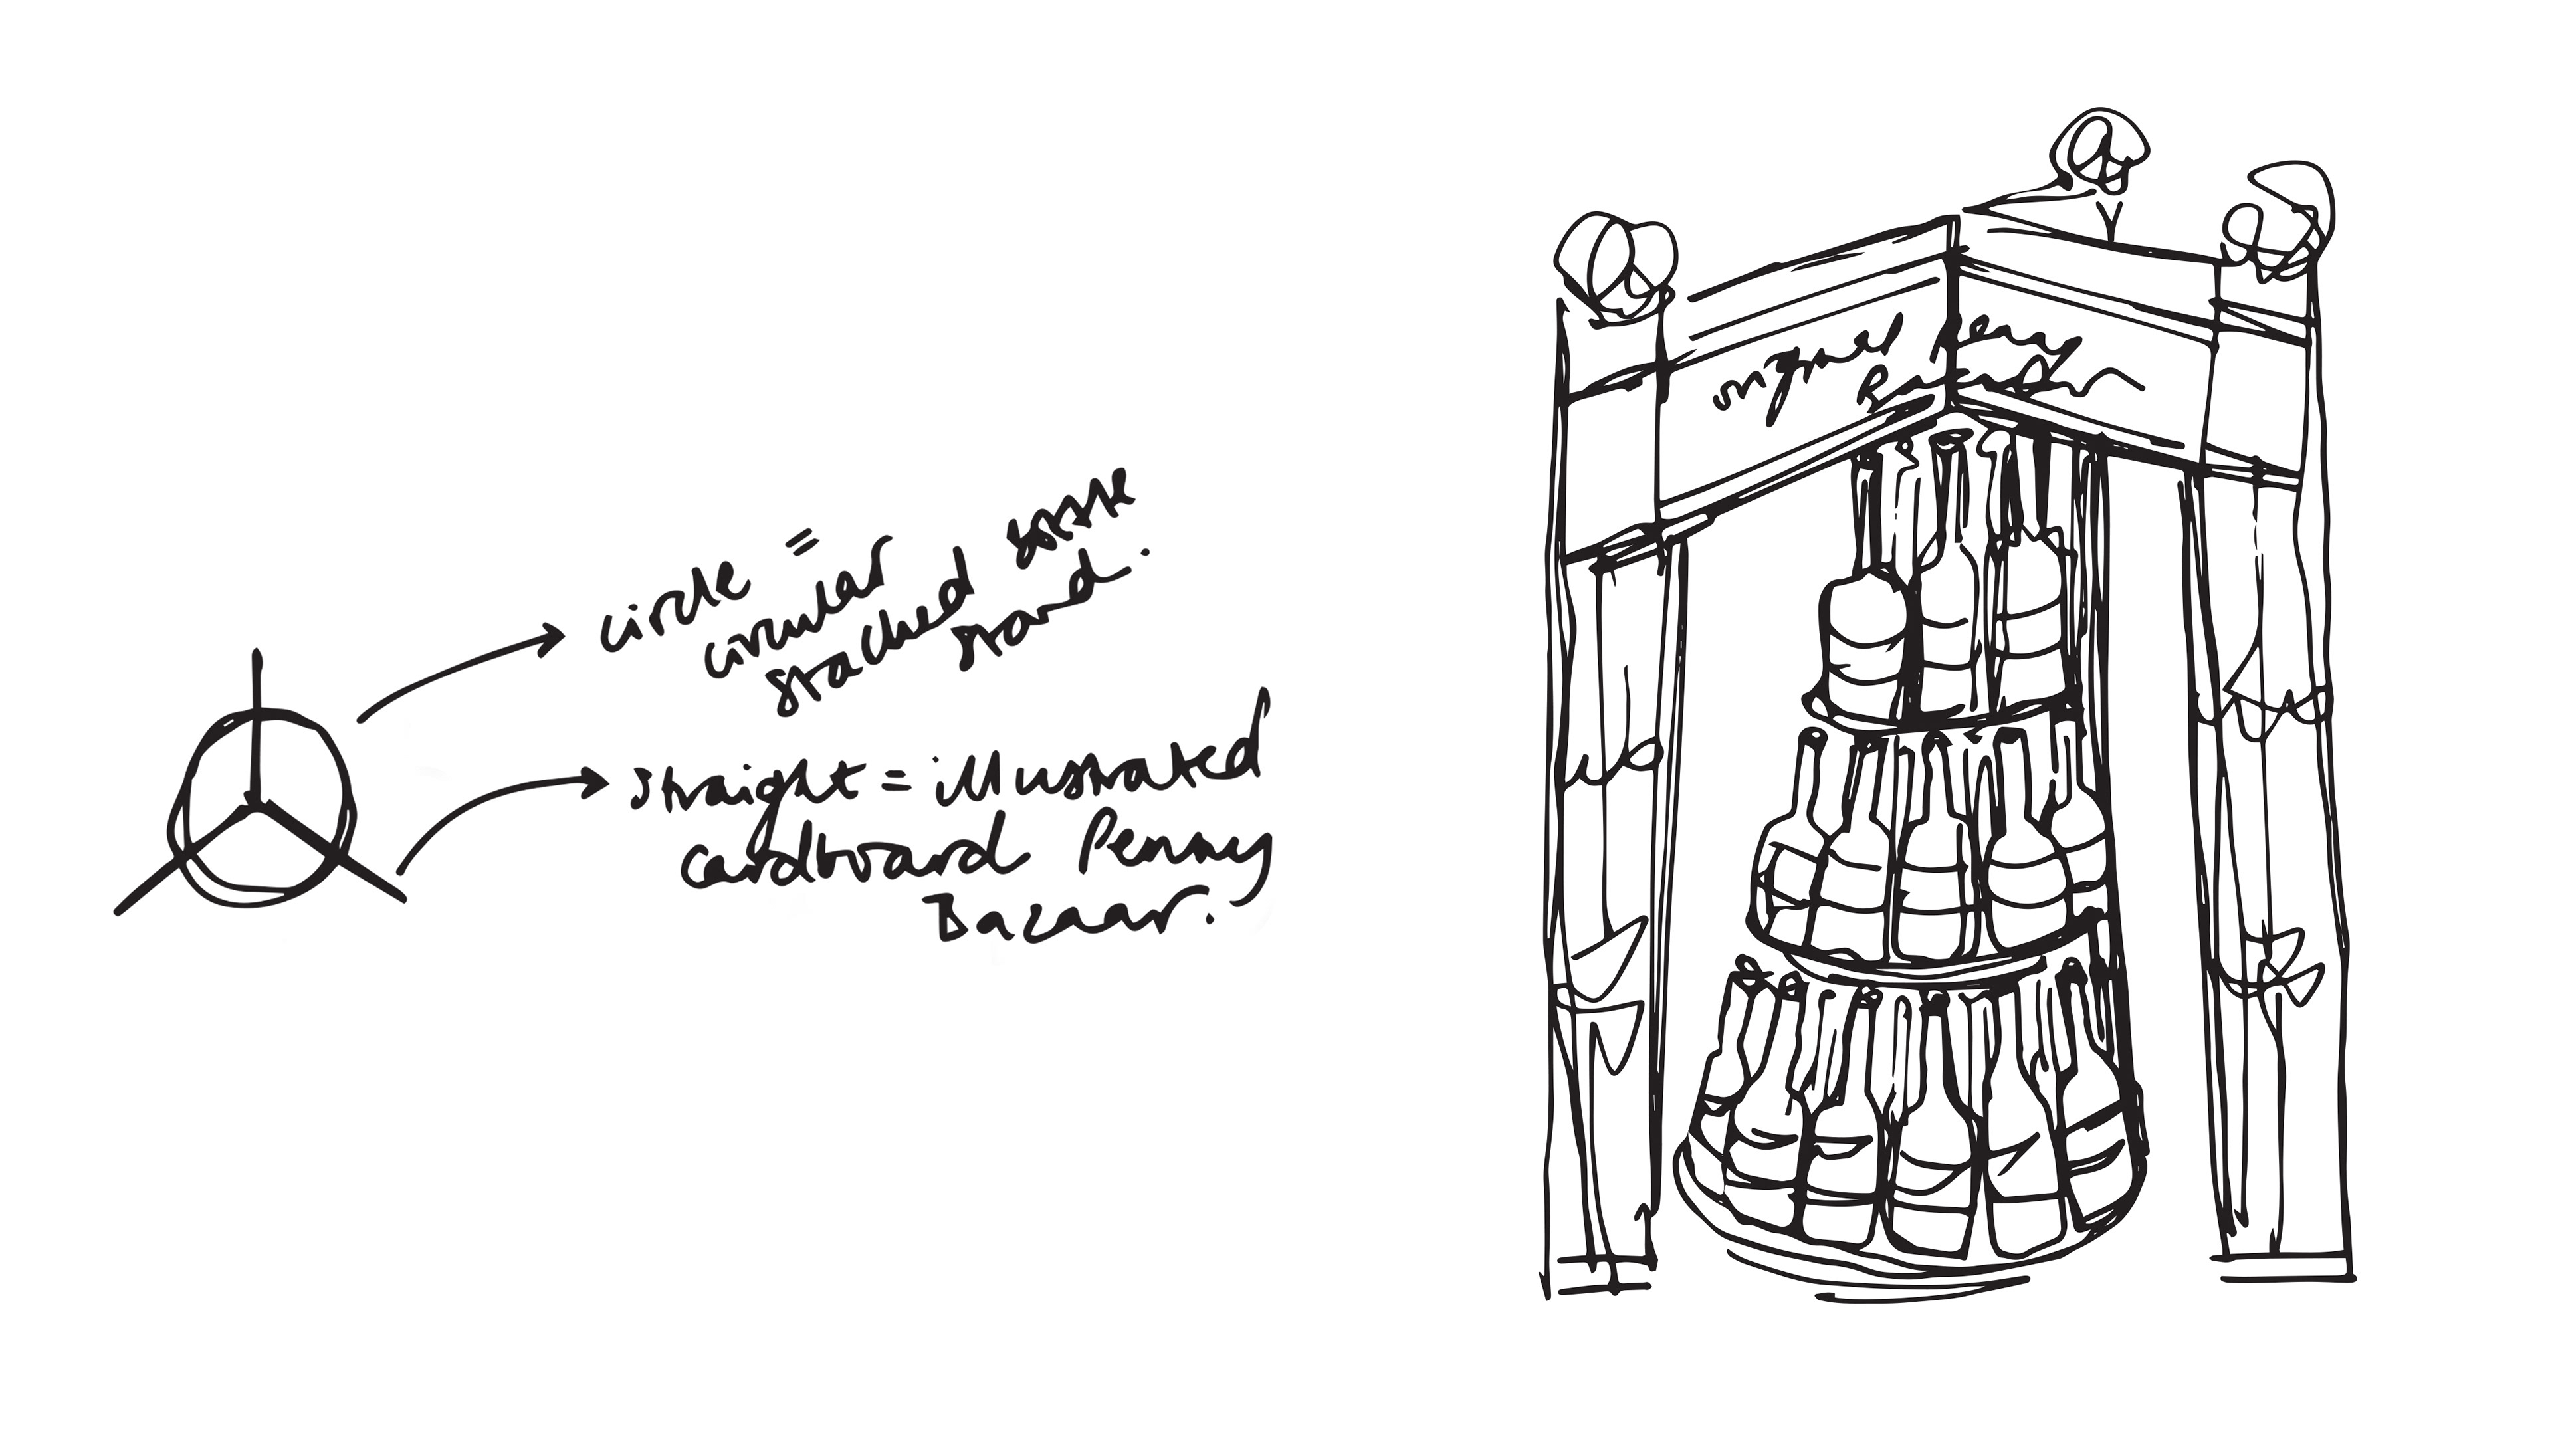 circle =
circular
stacked bottle
stand.
straight = illustrated
cardboard Penny
Bazaar.
original Penny
Bazaar